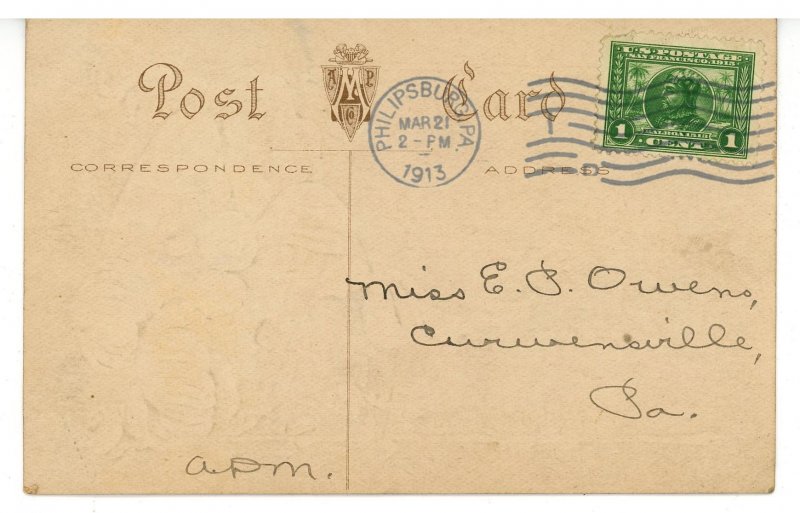 Post Card
A M P
Co
PHILIPSBURG, PA.
MAR 21
2 - PM
1913
U.S. POSTAGE
SAN FRANCISCO, 1915
BALBOA 1513
1 CENT 1
CORRESPONDENCE
ADDRESS
Miss E. P. Owens,
Curwensville,
Pa.
a.P.M.